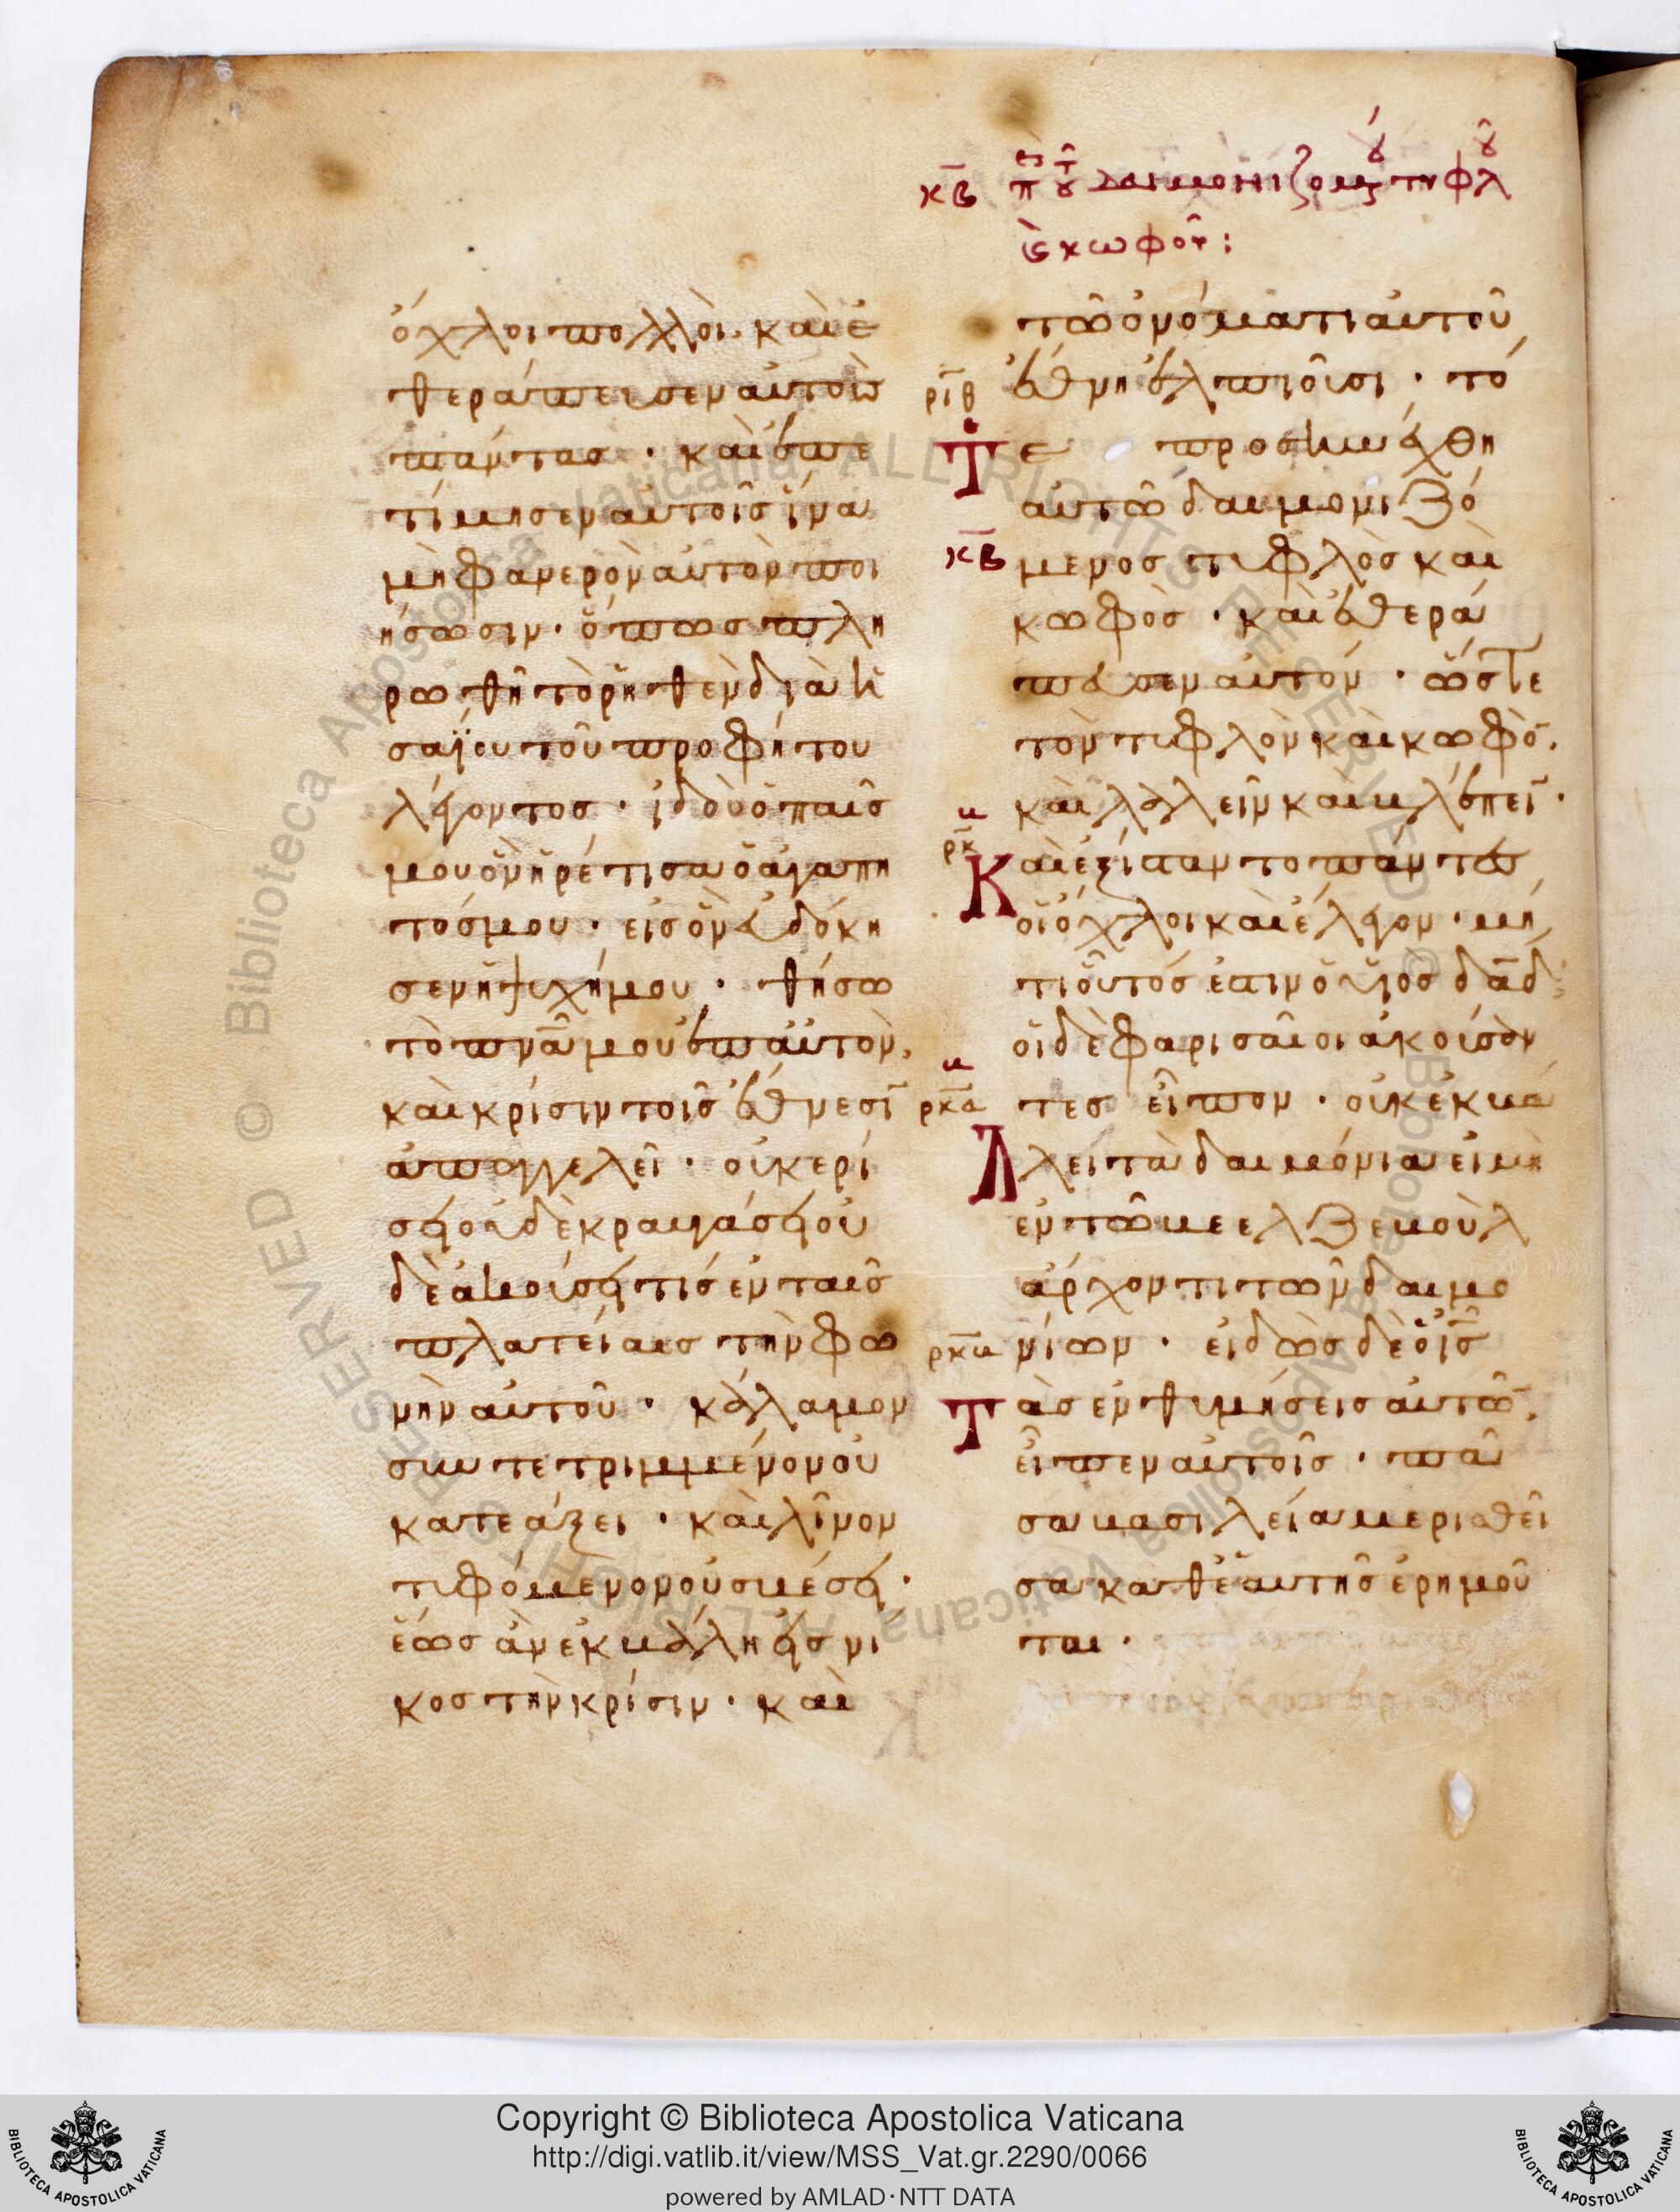 κβ πε τοῦ δαιμονιζομέ τυφλοῦ
καὶ κωφοῦ:
ὄχλοι πολλοὶ· καὶ ἐ
θεράπευσεν αὐτοὺσ
πάντασ· καὶ ἐπε
τίμησεν αὐτοῖσ ἵνα
μὴ φανερὸν αὐτὸν ποι
ήσωσιν· ὅπωσ πλη
ρωθῆ τὸ ῥηθὲν διὰ ἡ
σαΐου τοῦ προφήτου
λέγοντοσ· ἰδοὺ ὁ παῖσ
μου ὃν ἡρέτισα ὁ ἀγαπη
τόσ μου· εἰσ ὃν εὐδόκη
σεν ἡ ψυχή μου· θήσω
τὸ πνα μου ἐπ αὐτὸν,
καὶ κρίσιν τοῖσ ἔθνεσι
ἀπαγγελεῖ· οὐκ ερί
σει οὐδὲ κραυγάσει οὐ
δὲ ἀκούσει τίσ ἐν ταῖσ
πλατείαισ τὴν φω
νὴν αὐτοῦ· κάλαμον
συντετριμμένον οὐ
κατεάξει· καὶ λῖνον
τυφόμενον οὐ σβέσει·
ἕωσ ἂν ἐκβάλη εἰσ νῖ
κοσ τὴν κρίσιν· καὶ
τῶ ὀνόματι αὐτοῦ
ριθ ἔθνη ἐλπιοῦσι· τό
Τε προσηνέχθη
αὐτῶ δαιμονιζό
κβ μενοσ τυφλὸσ καὶ
κωφὸσ· καὶ ἐθερά
πευσεν αὐτόν· ὥστε
τὸν τυφλὸν καὶ κωφὸ,
καὶ λαλεῖν καὶ βλέπει·
ρκ
Καὶ εξίσταντο πάντεσ
οἱ ὄχλοι καὶ έλεγον· μή
τι οὗτόσ ἐστιν ὁ υἱὸσ δαδ
οἱ δὲ φαρισαῖοι ἀκούσαν
ρκα τεσ εἶπον· οὐκ ἐκβά
λλει τὰ δαιμόνια εἰ μὴ
εν τῶ βεελζεβοὺλ
ἄρχοντι τῶν δαιμο
ρκβ νίων· εἰδὼσ δὲ ὁ ισ
Τὰσ ενθυμήσεισ αὐτῶ,
εἶπεν αὐτοῖσ· πᾶ
σα βασιλεία μερισθεῖ
σα καθ ἑαυτῆσ ἐρημοῦ
ται·
Copyright © Biblioteca Apostolica Vaticana
http://digi.vatlib.it/view/MSS_Vat.gr.2290/0066
powered by AMLAD·NTT DATA
BIBLIOTECA APOSTOLICA VATICANA
BIBLIOTECA APOSTOLICA VATICANA